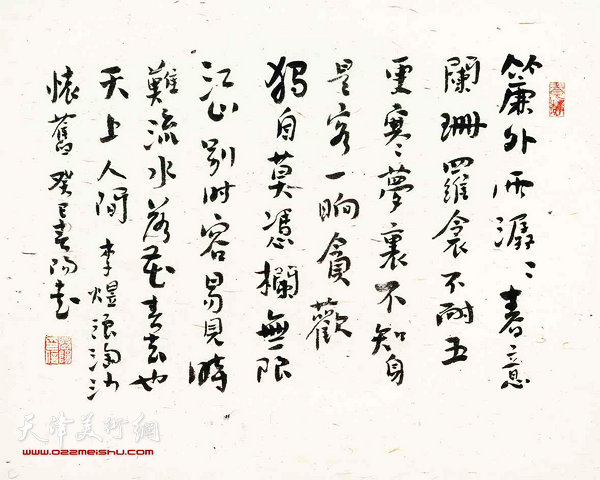 簾外雨潺〻春意
闌珊羅衾不耐五
更寒〻夢裏不知身
是客一晌貪歡
獨自莫憑欄無限
江山別時容易見時
難流水落花春去也
天上人間 李煜浪淘沙
懷舊 癸巳春陽書
天津美術網
www.022meishu.com